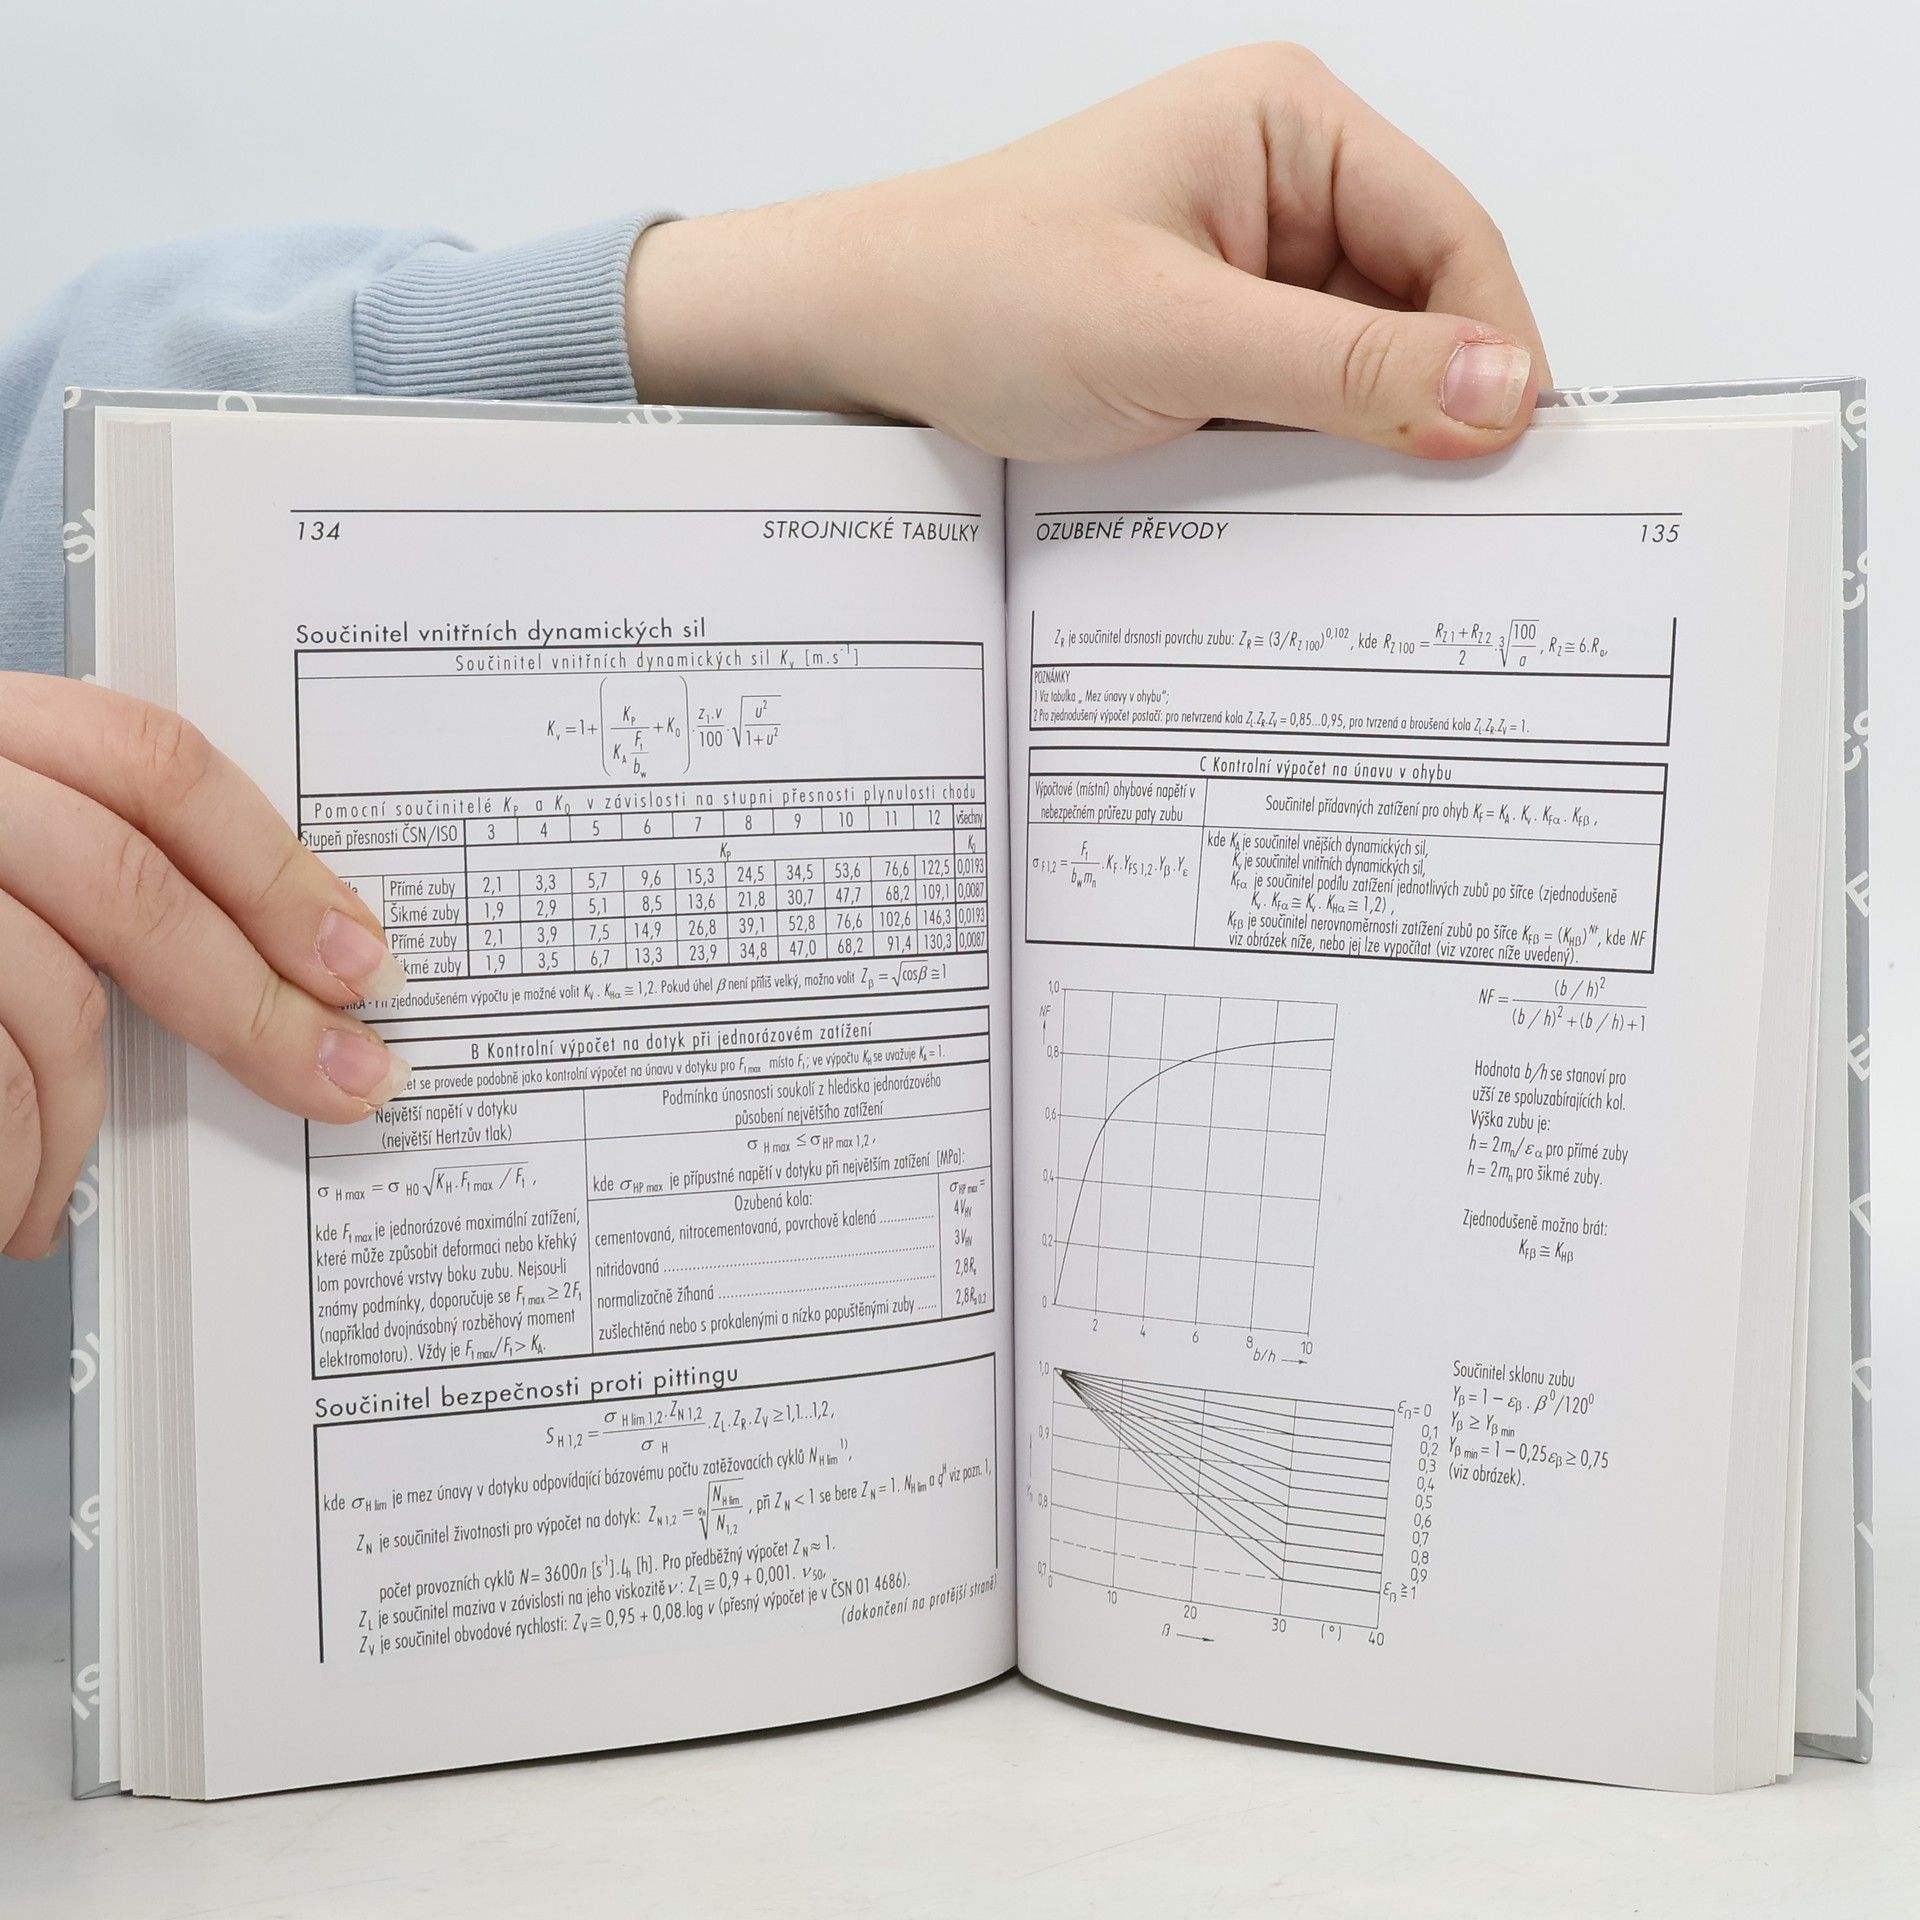 134 STROJNICKÉ TABULKY
Součinitel vnitřních dynamických sil
Součinitel vnitřních dynamických sil Kv [m.s⁻¹]
Kv = 1+(Kp/(KA Ft/bw)+KQ)·z1.v/100·√(u²/(1+u²))
Pomocní součinitelé KP a KQ v závislosti na stupni přesnosti plynulosti chodu
Stupeň přesnosti ČSN/ISO 3 4 5 6 7 8 9 10 11 12 všechny
KP KQ
Přímé zuby 2,1 3,3 5,7 9,6 15,3 24,5 34,5 53,6 76,6 122,5 0,0193
Šikmé zuby 1,9 2,9 5,1 8,5 13,6 21,8 30,7 47,7 68,2 109,1 0,0087
Přímé zuby 2,1 3,9 7,5 14,9 26,8 39,1 52,8 76,6 102,6 146,3 0,0193
kmé zuby 1,9 3,5 6,7 13,3 23,9 34,8 47,0 68,2 91,4 130,3 0,0087
zjednodušeném výpočtu je možné volit Kv . KHα ≅ 1,2. Pokud úhel β není příliš velký, možno volit Zβ = √cosβ ≅ 1
B Kontrolní výpočet na dotyk při jednorázovém zatížení
et se provede podobně jako kontrolní výpočet na únavu v dotyku pro Ft max místo Ft; ve výpočtu KH se uvažuje KA = 1.
Největší napětí v dotyku
(největší Hertzův tlak)
σ H max = σ H0 √(KH.Ft max / Ft) ,
kde Ft max je jednorázové maximální zatížení,
které může způsobit deformaci nebo křehký
lom povrchové vrstvy boku zubu. Nejsou-li
známy podmínky, doporučuje se Ft max ≥ 2Ft
(například dvojnásobný rozběhový moment
elektromotoru). Vždy je Ft max/Ft > KA.
Podmínka únosnosti soukolí z hlediska jednorázového
působení největšího zatížení
σ H max ≤ σHP max 1,2 ,
kde σHP max je přípustné napětí v dotyku při největším zatížení [MPa]:
Ozubená kola: σHP max =
cementovaná, nitrocementovaná, povrchově kalená .............. 4VHV
nitridovaná .............. 3VHV
normalizačně žíhaná .............. 2,8Re
zušlechtěná nebo s prokalenými a nízko popuštěnými zuby ...... 2,8Rp0,2
Součinitel bezpečnosti proti pittingu
S H 1,2 = (σ H lim 1,2 . Z N 1,2)/σ H . ZL . ZR . ZV ≥ 1,1...1,2,
kde σH lim je mez únavy v dotyku odpovídající bázovému počtu zatěžovacích cyklů N H lim 1),
ZN je součinitel životnosti pro výpočet na dotyk: Z N 1,2 = qH√(NH lim/N1,2) , při Z N < 1 se bere Z N = 1. NH lim a qH viz pozn. 1,
počet provozních cyklů N = 3600n [s⁻¹].Lh [h]. Pro předběžný výpočet Z N ≈ 1.
ZL je součinitel maziva v závislosti na jeho viskozitě ν: ZL ≅ 0,9 + 0,001. ν50,
ZV je součinitel obvodové rychlosti: ZV ≅ 0,95 + 0,08.log v (přesný výpočet je v ČSN 01 4686).
(dokončení na protější straně)
OZUBENÉ PŘEVODY 135
ZR je součinitel drsnosti povrchu zubu: ZR ≅ (3/RZ 100)^0,102 , kde RZ 100 = (RZ1+RZ2)/2 . ³√(100/a) , RZ ≅ 6.Ra,
POZNÁMKY
1 Viz tabulka „ Mez únavy v ohybu“;
2 Pro zjednodušený výpočet postačí: pro netvrzená kola ZL.ZR.ZV = 0,85...0,95, pro tvrzená a broušená kola ZL.ZR.ZV = 1.
C Kontrolní výpočet na únavu v ohybu
Výpočtové (místní) ohybové napětí v
nebezpečném průřezu paty zubu
σ F1,2 = Ft/(bw mn) .KF.YFS 1,2.Yβ.Yε
Součinitel přídavných zatížení pro ohyb KF = KA . Kv . KFα . KFβ ,
kde KA je součinitel vnějších dynamických sil,
Kv je součinitel vnitřních dynamických sil,
KFα je součinitel podílu zatížení jednotlivých zubů po šířce (zjednodušeně
Kv . KFα ≅ Kv . KHα ≅ 1,2) ,
KFβ je součinitel nerovnoměrnosti zatížení zubů po šířce KFβ = (KHβ)^Nf, kde NF
viz obrázek níže, nebo jej lze vypočítat (viz vzorec níže uvedený).
1,0
NF
0,8
0,6
0,4
0,2
0
2 4 6 8 10
b/h
NF = (b / h)²/((b / h)² +(b / h)+1)
Hodnota b/h se stanoví pro
užší ze spoluzabírajících kol.
Výška zubu je:
h = 2mn/εα pro přímé zuby
h = 2mn pro šikmé zuby.
Zjednodušeně možno brát:
KFβ ≅ KHβ
1,0
0,9
0,8
0,7
0 10 20 30 (°) 40
β
εβ = 0
0,1
0,2
0,3
0,4
0,5
0,6
0,7
0,8
0,9
εβ ≧ 1
Součinitel sklonu zubu
Yβ = 1 − εβ . β⁰/120⁰
Yβ ≥ Yβ min
Yβ min = 1 − 0,25εβ ≥ 0,75
(viz obrázek).